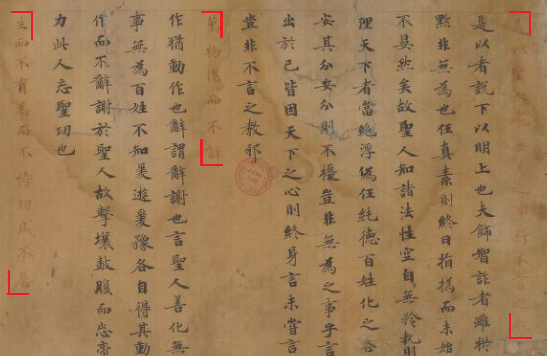 以聖人處無為之事行不言之教
是以者說下以明上也夫飾智詐者雖拱
默非無為也任真素則終日指撝而未始
不晏然矣故聖人知諸法性空自無矜執則
理天下者當絕浮偽任純德百姓化之各
安其分安分則不擾豈非無為之事乎言
出於已皆因天下之心則終身言未嘗言
豈非不言之教耶
萬物作而不辭
作猶動作也辭謂辭謝也言聖人善化無
事無為百姓不知爰遊爰豫各自得其動
作而不辭謝於聖人故擊壤鼓腹而忘帝
力此人忘聖功也
生而不有為而不恃功成不居